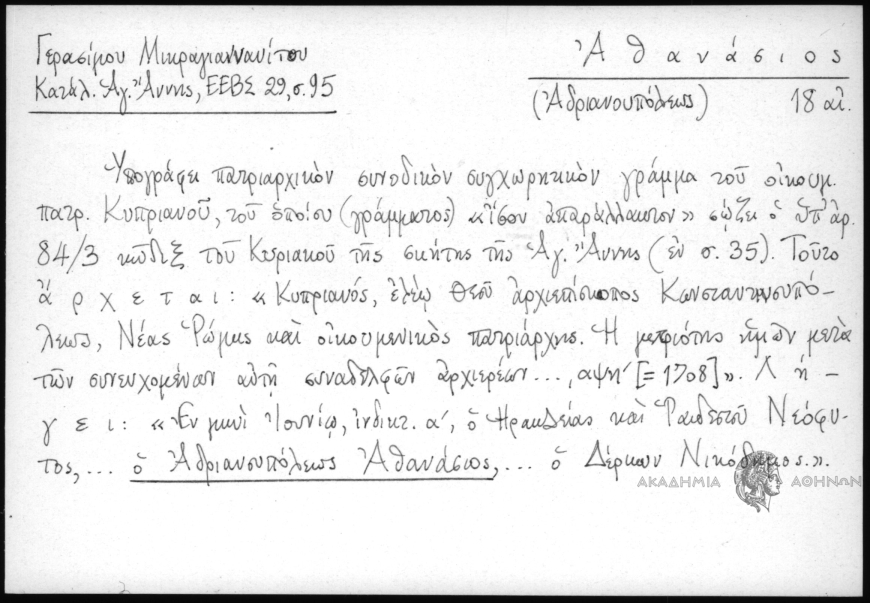 Γερασίμου Μικραγιαννανίτου
Κατάλ. Ἁγ. Ἄννης, ΕΕΒΣ 29, σ. 95
Ἀθανάσιος
(Ἀδριανουπόλεως) 18 αἰ.
Ὑπογράφει πατριαρχικὸν συνοδικὸν συγχωρητικὸν γράμμα τοῦ οἰκουμ.
πατρ. Κυπριανοῦ, τοῦ ὁποίου (γράμματος) «ἴσον ἀπαράλλακτον» σῴζει ὁ ὑπ' ἀρ.
84/3 κῶδιξ τοῦ Κυριακοῦ τῆς σκήτης τῆς Ἁγ. Ἄννης (ἐν σ. 35). Τοῦτο
ἄρχεται: «Κυπριανός, ἐλέῳ Θεοῦ ἀρχιεπίσκοπος Κωνσταντινουπό-
λεως, Νέας Ῥώμης καὶ οἰκουμενικὸς πατριάρχης. Ἡ μετριότης ἡμῶν μετὰ
τῶν συνευχομένων αὐτῇ συναδελφῶν ἀρχιερέων..., αψη' [= 1708]». Λή-
γει: «Ἐν μηνὶ Ἰουνίῳ, ἰνδικτ. α', ὁ Ἡρακλείας καὶ Ῥαιδεστοῦ Νεόφυ-
τος, ... ὁ Ἀδριανουπόλεως Ἀθανάσιος, ... ὁ Δέρκων Νικόδημος.».
ΑΚΑΔΗΜΙΑ ΑΘΗΝΩΝ